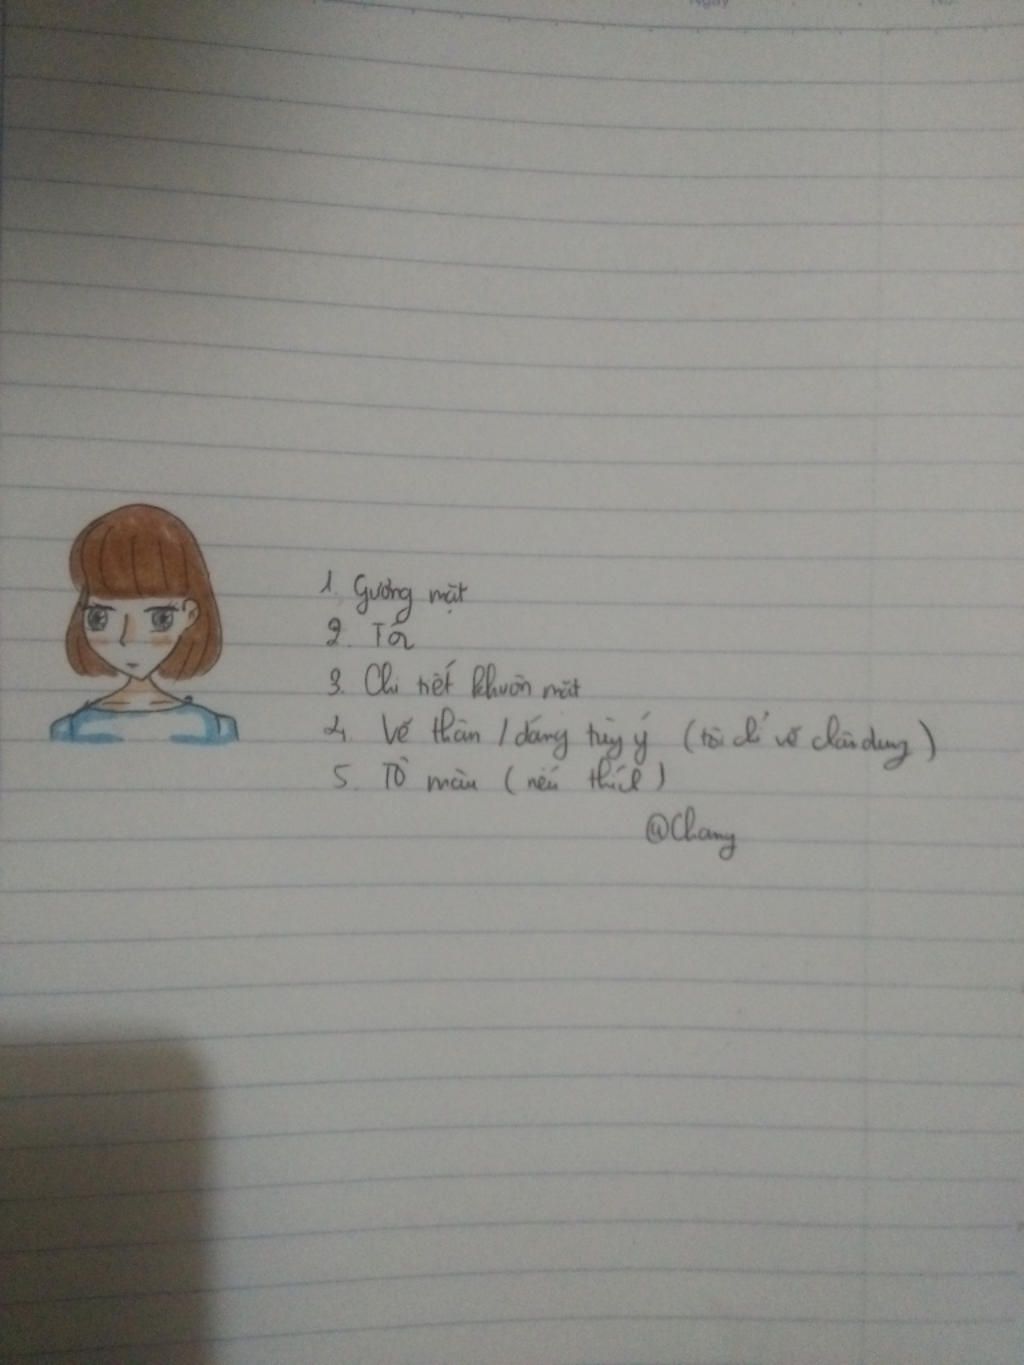 Ngày
No.
1. Gương mặt
2. Tóc
3. Chi tiết khuôn mặt
4. Vẽ thân / dáng tùy ý (tôi chỉ vẽ chân dung)
5. Tô màu (nếu thích)
@Chang